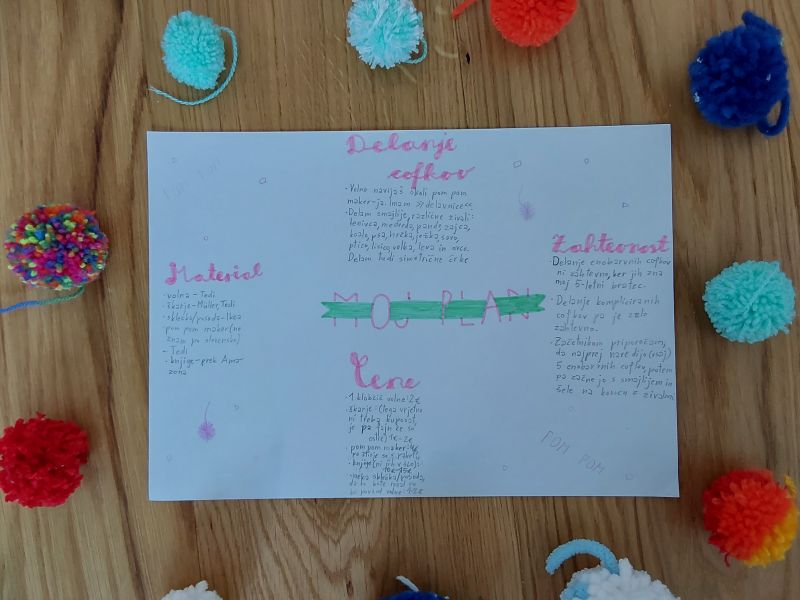 POM POM
Delanje
cofkov
- Volno navijaš okoli pom pom
maker-ja. Imam 2 delavnice
- Delam smajlije, različne živali:
lenivca, medveda, pando, zajca,
koalo, psa, hrčka, ježka, sovo,
ptico, lisico, volka, leva in ovco.
Delam tudi simetrične črke
Material
- volna - Tedi
- škarje - Müller, Tedi
- obleka/posoda - Ikea
- pom pom maker (ne
znam po slovensko)
- Tedi
- knjige - prek Ama-
zona
MOJ PLAN
Zahtevnost
- Delanje enobarvnih cofkov
ni zahtevno, ker jih zna
moj 5-letni bratec.
- Delanje kompliciranih
cofkov pa je zelo
zahtevno.
- Začetnikom priporočam,
da najprej naredijo (vsaj)
5 enobarvnih cofkov, potem
pa začnejo s smajlijem in
šele na koncu z živalmi.
Cene
- 1 klobčič volne: 2€
- škarje - (tega verjetno
ni treba kupovat,
je pa fajn če so
ostre) 1€-2€
- pom pom maker: 4€
- knjige
10€-15€
- neka škatla/posoda,
POM POM